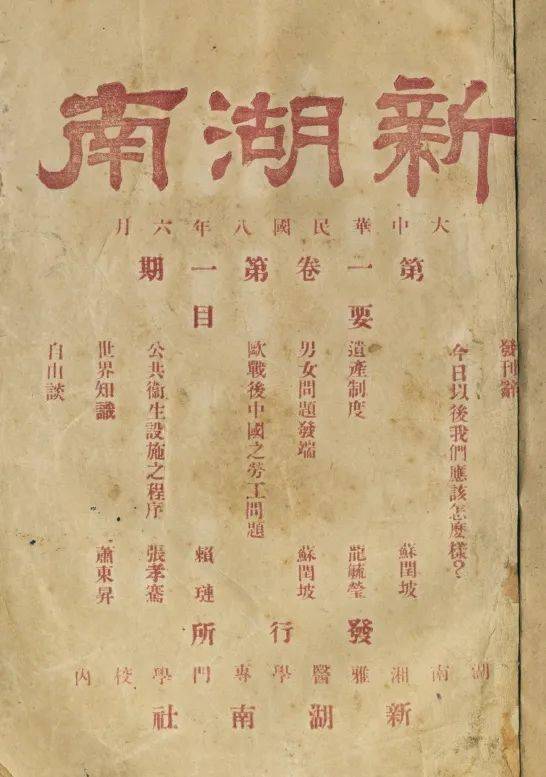 新湖南
大中華民國八年六月
第一卷第一期
要目
發刊辭
今日以後我們應該怎麽樣？ 蘇閏坡
遺產制度 龍毓瑩
男女問題發端 蘇閏坡
歐戰後中國之勞工問題 賴璉
公共衞生設施之程序 張孝騫
世界知識 蕭東昇
自由談
發行所
湖南湘雅醫學專門學校內
新湖南社